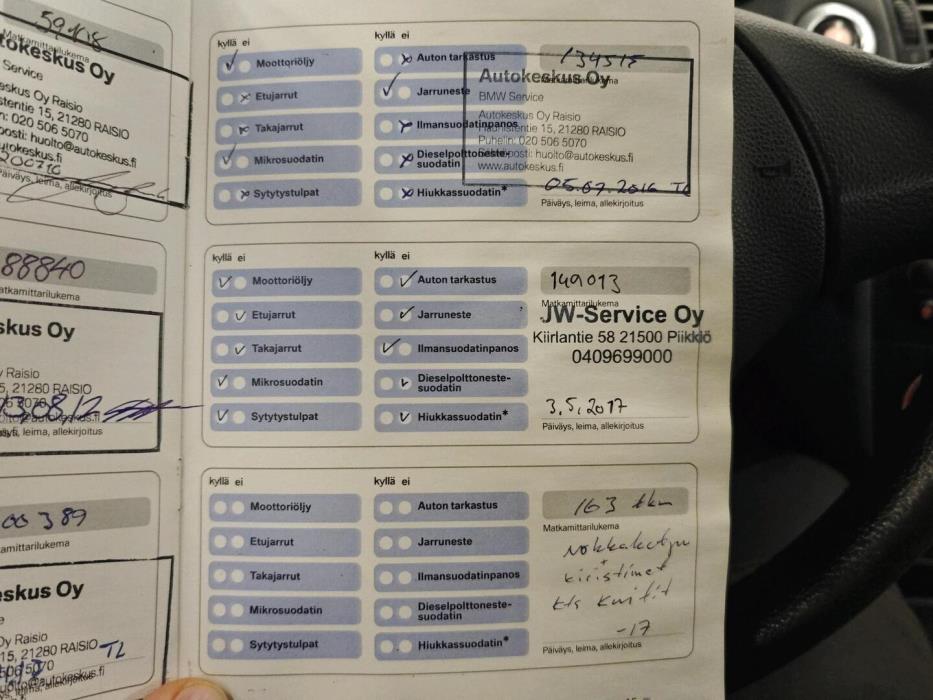 59418
Matkamittarilukema
tokeskus Oy
Service
eskus Oy Raisio
stentie 15, 21280 RAISIO
n: 020 506 5070
posti: huolto@autokeskus.fi
tokeskus.fi
Päiväys, leima, allekirjoitus
88840
atkamittarilukema
skus Oy
y Raisio
5, 21280 RAISIO
06 5070
olto@autokeskus.fi
äys, leima, allekirjoitus
00389
amittarilukema
eskus Oy
e
Oy Raisio
15, 21280 RAISIO TL
506 5070
uolto@autokeskus.fi
allekirjoitus
kyllä ei
Moottoriöljy
Etujarrut
Takajarrut
Mikrosuodatin
Sytytystulpat
kyllä ei
Auton tarkastus
Jarruneste
Ilmansuodatinpanos
Dieselpolttoneste-
suodatin
Hiukkassuodatin*
134515
Autokeskus Oy
BMW Service
Autokeskus Oy Raisio
15, 21280 RAISIO
Puhelin: 020 506 5070
huolto@autokeskus.fi
www.autokeskus.fi
05.07.2016 TL
Päiväys, leima, allekirjoitus
kyllä ei
Moottoriöljy
Etujarrut
Takajarrut
Mikrosuodatin
Sytytystulpat
kyllä ei
Auton tarkastus
Jarruneste
Ilmansuodatinpanos
Dieselpolttoneste-
suodatin
Hiukkassuodatin*
149013
Matkamittarilukema
JW-Service Oy
Kiirlantie 58 21500 Piikkiö
0409699000
3.5.2017
Päiväys, leima, allekirjoitus
kyllä ei
Moottoriöljy
Etujarrut
Takajarrut
Mikrosuodatin
Sytytystulpat
kyllä ei
Auton tarkastus
Jarruneste
Ilmansuodatinpanos
Dieselpolttoneste-
suodatin
Hiukkassuodatin*
163 tkm
Matkamittarilukema
Nokkaketju
kiristimet
kts kuitit
-17
Päiväys, leima, allekirjoitus